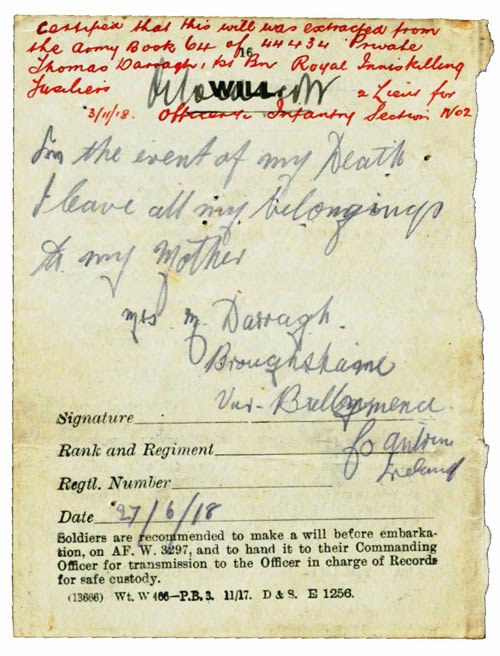 Certified that this will was extracted from
the Army Book 64 of 44434 Private
16
Thomas Darragh, 1st Bn Royal Inniskilling
Fusiliers
WILL
2 Lieut for
3/11/18. Officer i/c Infantry Section No 2
In the event of my Death
I leave all my belongings
to my Mother
Mrs. M. Darragh.
Broughshane
Ballymena
Signature
Co Antrim
Rank and Regiment
Ireland
Regtl. Number
Date 27/6/18
Soldiers are recommended to make a will before embarka-
tion, on AF. W. 3297, and to hand it to their Commanding
Officer for transmission to the Officer in charge of Records
for safe custody.
(13666) Wt. W 466—P.B. 3. 11/17. D & S. E 1256.